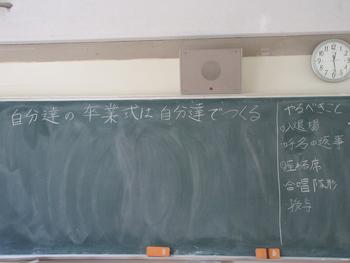 自分達の卒業式は自分達でつくる
やるべきこと
入退場
呼名の返事
座席
合唱隊形
授与